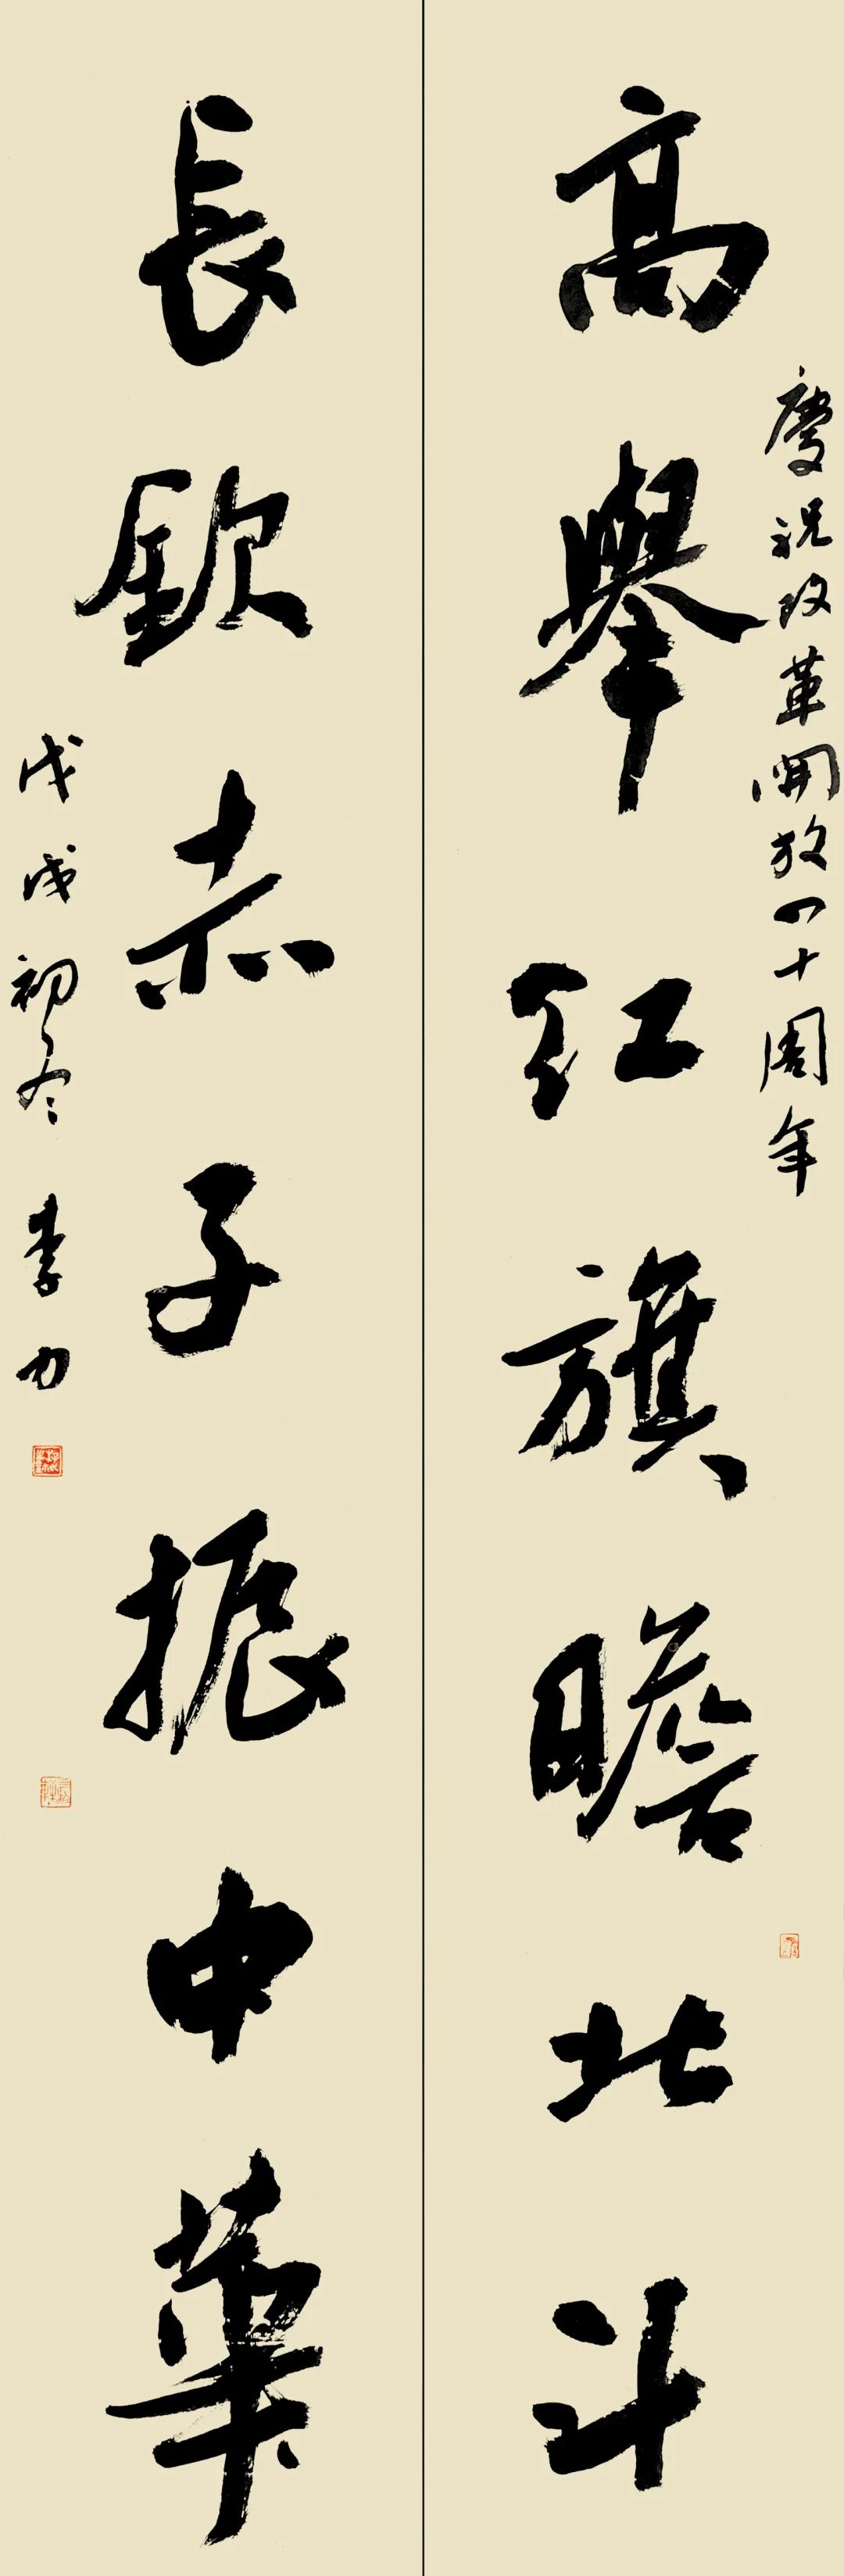 慶祝改革開放四十周年
高舉紅旗瞻北斗
長欽赤子振中華
戊戌初冬 李力